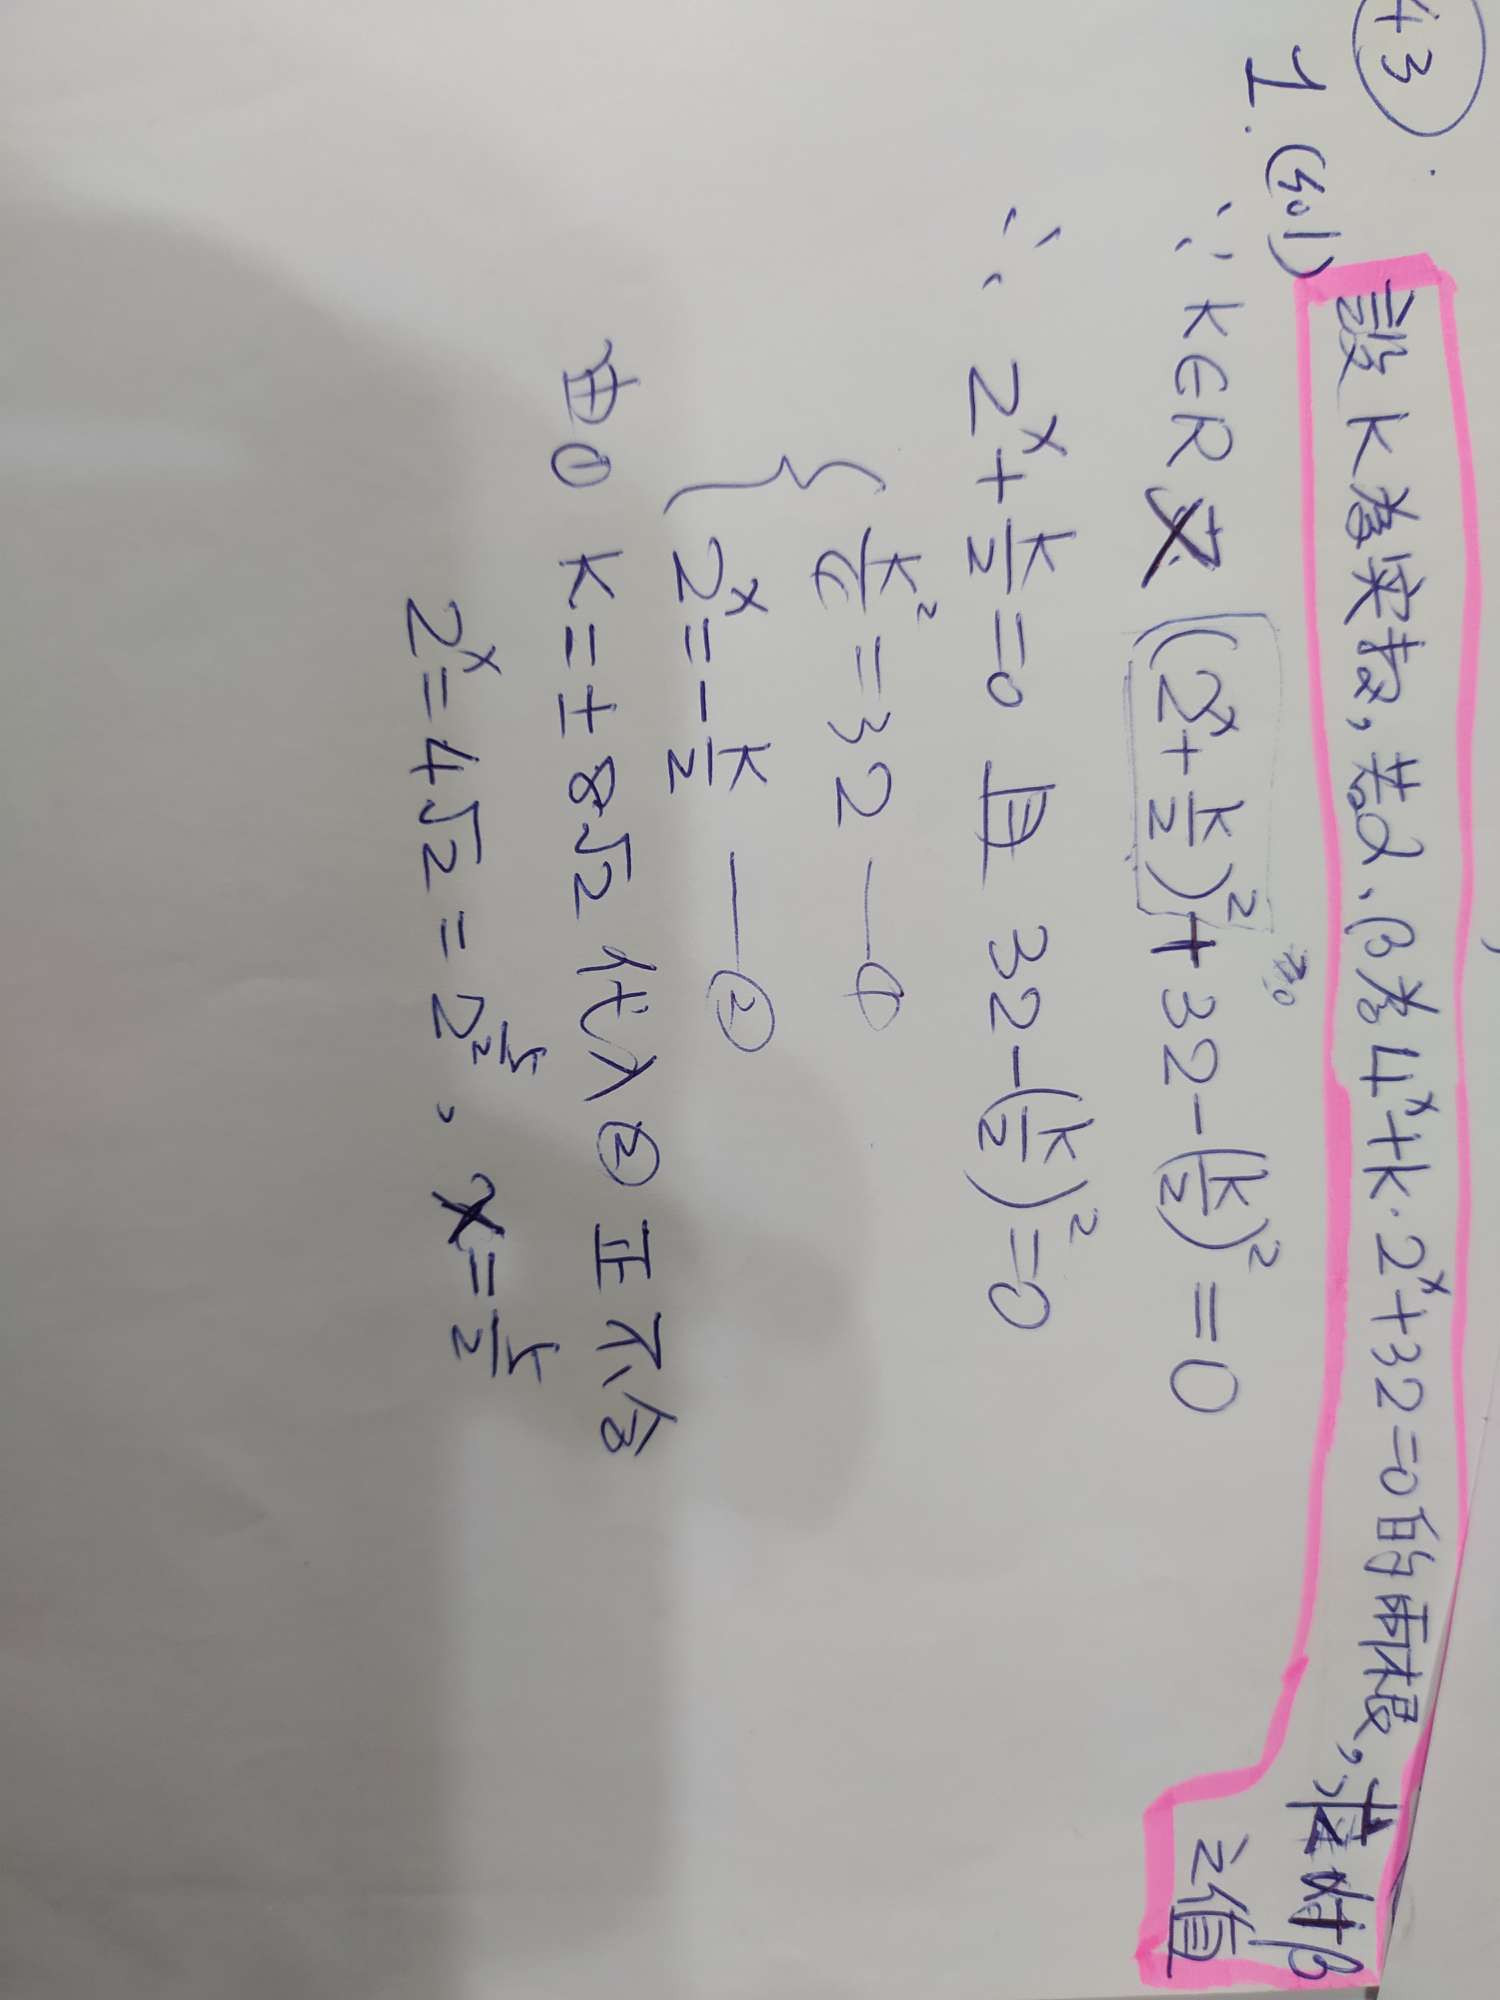 43
1. (sol) 設k為實數,若α、β為4^x+k·2^x+32=0的兩根,求α+β
之值
∵ k∈R (2^x+k/2)^2+32-(k/2)^2=0
≥0
∴ 2^x+k/2=0 且 32-(k/2)^2=0
{ k^2/4=32 —①
2^x=-k/2 —②
由① k=±8√2代入② 正不合
2^x=4√2=2^{5/2}, x=5/2